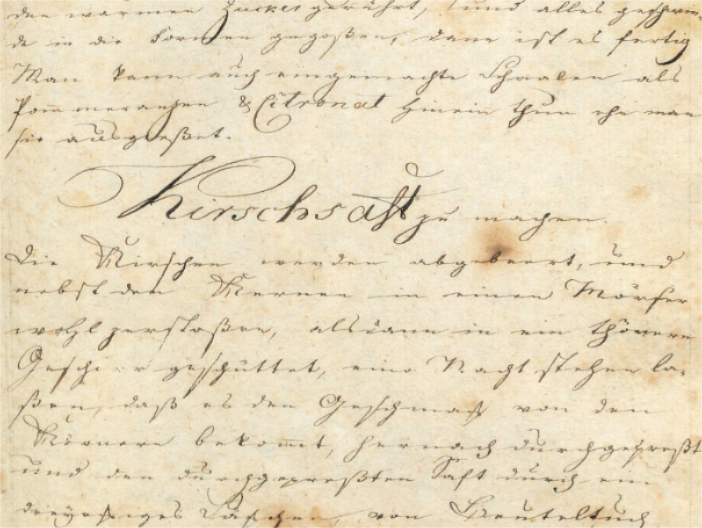 den warmen Zucker gerührt, und alles geschwin-
de in die Formen gegoßen, dann ist es fertig
Man kann auch eingemachte Schaalen als
Pommeranzen & Citronat hinein thun ehe man
sie ausgießet.
Kirschsafft zu machen.
Die Kirschen werden abgebeert, und
nebst den Kernen in einen Mörser
wohl zerstoßen, alsdann in ein thönern
Geschirr geschüttet, eine Nacht stehen la-
ßen, daß es den Geschmak von den
Körnern bekommt, hernach durchgepreßt
und den durchgepreßten Saft durch ein
dreyeckiges Säckchen, von Beuteltuch